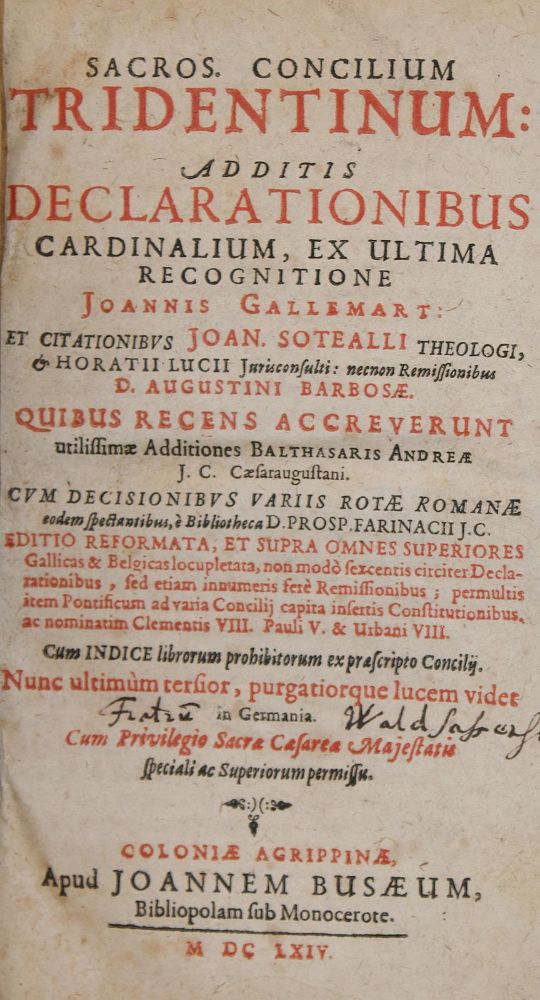 SACROS. CONCILIUM
TRIDENTINUM:
ADDITIS
DECLARATIONIBUS
CARDINALIUM, EX ULTIMA
RECOGNITIONE
JOANNIS GALLEMART:
ET CITATIONIBVS JOAN. SOTEALLI THEOLOGI,
& HORATII LUCII Jurisconsulti: necnon Remissionibus
D. AUGUSTINI BARBOSÆ.
QUIBUS RECENS ACCREVERUNT
utilissimæ Additiones BALTHASARIS ANDREÆ
J. C. Cæsaraugustani.
CVM DECISIONIBVS VARIIS ROTÆ ROMANÆ
eodem spectantibus, è Bibliotheca D. PROSP. FARINACII J.C.
EDITIO REFORMATA, ET SUPRA OMNES SUPERIORES
Gallicas & Belgicas locupletata, non modò sexcentis circiter Decla-
rationibus, sed etiam innumeris ferè Remissionibus; permultis
item Pontificum ad varia Concilij capita insertis Constitutionibus,
ac nominatim Clementis VIII. Pauli V. & Urbani VIII.
Cum INDICE librorum prohibitorum ex præscripto Concilij.
Nunc ultimùm tersior, purgatiorque lucem videt
in Germania.
Cum Privilegio Sacræ Cæsareæ Majestatis
speciali ac Superiorum permissu.
COLONIÆ AGRIPPINÆ,
Apud JOANNEM BUSÆUM,
Bibliopolam sub Monocerote.
M DC LXIV.